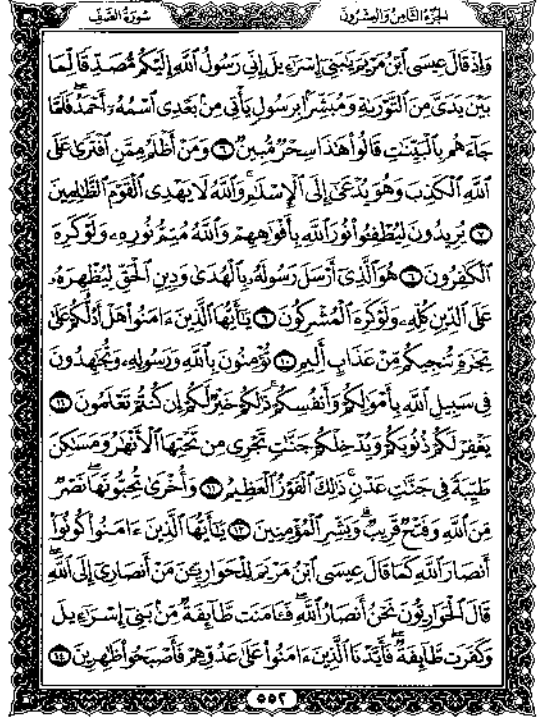 الجُزْءُ الثَّامِنُ وَالعِشْرُونَ
سُورَةُ الصَّفِّ
وَإِذْ قَالَ عِيسَى ٱبْنُ مَرْيَمَ يَٰبَنِىٓ إِسْرَٰٓءِيلَ إِنِّى رَسُولُ ٱللَّهِ إِلَيْكُم مُّصَدِّقًا لِّمَا
بَيْنَ يَدَىَّ مِنَ ٱلتَّوْرَىٰةِ وَمُبَشِّرًۢا بِرَسُولٍ يَأْتِى مِنۢ بَعْدِى ٱسْمُهُۥٓ أَحْمَدُ ۖ فَلَمَّا
جَآءَهُم بِٱلْبَيِّنَٰتِ قَالُوا۟ هَٰذَا سِحْرٌ مُّبِينٌ ٦ وَمَنْ أَظْلَمُ مِمَّنِ ٱفْتَرَىٰ عَلَى
ٱللَّهِ ٱلْكَذِبَ وَهُوَ يُدْعَىٰٓ إِلَى ٱلْإِسْلَٰمِ ۚ وَٱللَّهُ لَا يَهْدِى ٱلْقَوْمَ ٱلظَّٰلِمِينَ
٧ يُرِيدُونَ لِيُطْفِـُٔوا۟ نُورَ ٱللَّهِ بِأَفْوَٰهِهِمْ وَٱللَّهُ مُتِمُّ نُورِهِۦ وَلَوْ كَرِهَ
ٱلْكَٰفِرُونَ ٨ هُوَ ٱلَّذِىٓ أَرْسَلَ رَسُولَهُۥ بِٱلْهُدَىٰ وَدِينِ ٱلْحَقِّ لِيُظْهِرَهُۥ
عَلَى ٱلدِّينِ كُلِّهِۦ وَلَوْ كَرِهَ ٱلْمُشْرِكُونَ ٩ يَٰٓأَيُّهَا ٱلَّذِينَ ءَامَنُوا۟ هَلْ أَدُلُّكُمْ عَلَىٰ
تِجَٰرَةٍ تُنجِيكُم مِّنْ عَذَابٍ أَلِيمٍ ١٠ تُؤْمِنُونَ بِٱللَّهِ وَرَسُولِهِۦ وَتُجَٰهِدُونَ
فِى سَبِيلِ ٱللَّهِ بِأَمْوَٰلِكُمْ وَأَنفُسِكُمْ ۚ ذَٰلِكُمْ خَيْرٌ لَّكُمْ إِن كُنتُمْ تَعْلَمُونَ ١١
يَغْفِرْ لَكُمْ ذُنُوبَكُمْ وَيُدْخِلْكُمْ جَنَّٰتٍ تَجْرِى مِن تَحْتِهَا ٱلْأَنْهَٰرُ وَمَسَٰكِنَ
طَيِّبَةً فِى جَنَّٰتِ عَدْنٍ ۚ ذَٰلِكَ ٱلْفَوْزُ ٱلْعَظِيمُ ١٢ وَأُخْرَىٰ تُحِبُّونَهَا ۖ نَصْرٌ
مِّنَ ٱللَّهِ وَفَتْحٌ قَرِيبٌ ۗ وَبَشِّرِ ٱلْمُؤْمِنِينَ ١٣ يَٰٓأَيُّهَا ٱلَّذِينَ ءَامَنُوا۟ كُونُوٓا۟
أَنصَارَ ٱللَّهِ كَمَا قَالَ عِيسَى ٱبْنُ مَرْيَمَ لِلْحَوَارِيِّـۧنَ مَنْ أَنصَارِىٓ إِلَى ٱللَّهِ ۖ
قَالَ ٱلْحَوَارِيُّونَ نَحْنُ أَنصَارُ ٱللَّهِ ۖ فَـَٔامَنَت طَّآئِفَةٌ مِّنۢ بَنِىٓ إِسْرَٰٓءِيلَ
وَكَفَرَت طَّآئِفَةٌ ۖ فَأَيَّدْنَا ٱلَّذِينَ ءَامَنُوا۟ عَلَىٰ عَدُوِّهِمْ فَأَصْبَحُوا۟ ظَٰهِرِينَ ١٤
٥٥٢